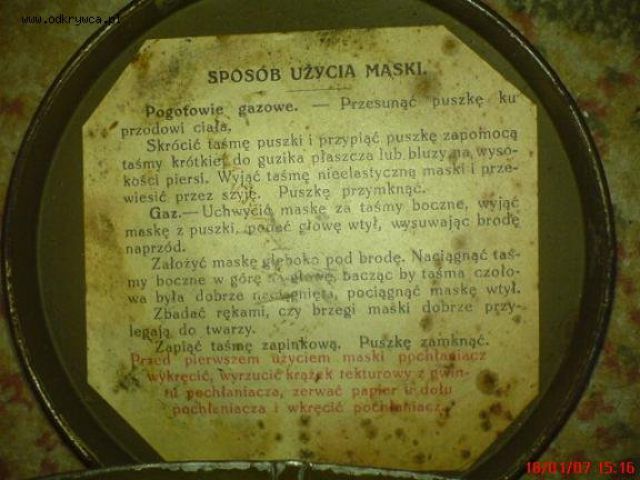 www.odkrywca.pl
SPOSÓB UŻYCIA MASKI.
Pogotowie gazowe. — Przesunąć puszkę ku
przodowi ciała.
Skrócić taśmę puszki i przypiąć puszkę zapomocą
taśmy krótkiej do guzika płaszcza lub bluzy na wyso-
kości piersi. Wyjąć taśmę nieelastyczną maski i prze-
wiesić przez szyję. Puszkę przymknąć.
Gaz.— Uchwycić maskę za taśmy boczne, wyjąć
maskę z puszki, podać głowę wtył, wysuwając brodę
naprzód.
Założyć maskę głęboko pod brodę. Naciągnąć taś-
my boczne w górę na głowę, bacząc by taśma czoło-
wa była dobrze naciągnięta, pociągnąć maskę wtył.
Zbadać rękami, czy brzegi maski dobrze przy-
legają do twarzy.
Zapiąć taśmę zapinkową. Puszkę zamknąć.
Przed pierwszem użyciem maski pochłaniacz
wykręcić, wyrzucić krążek tekturowy z gwin-
tu pochłaniacza, zerwać papier u dołu
pochłaniacza i wkręcić pochłaniacz.
18/01/07 15:16